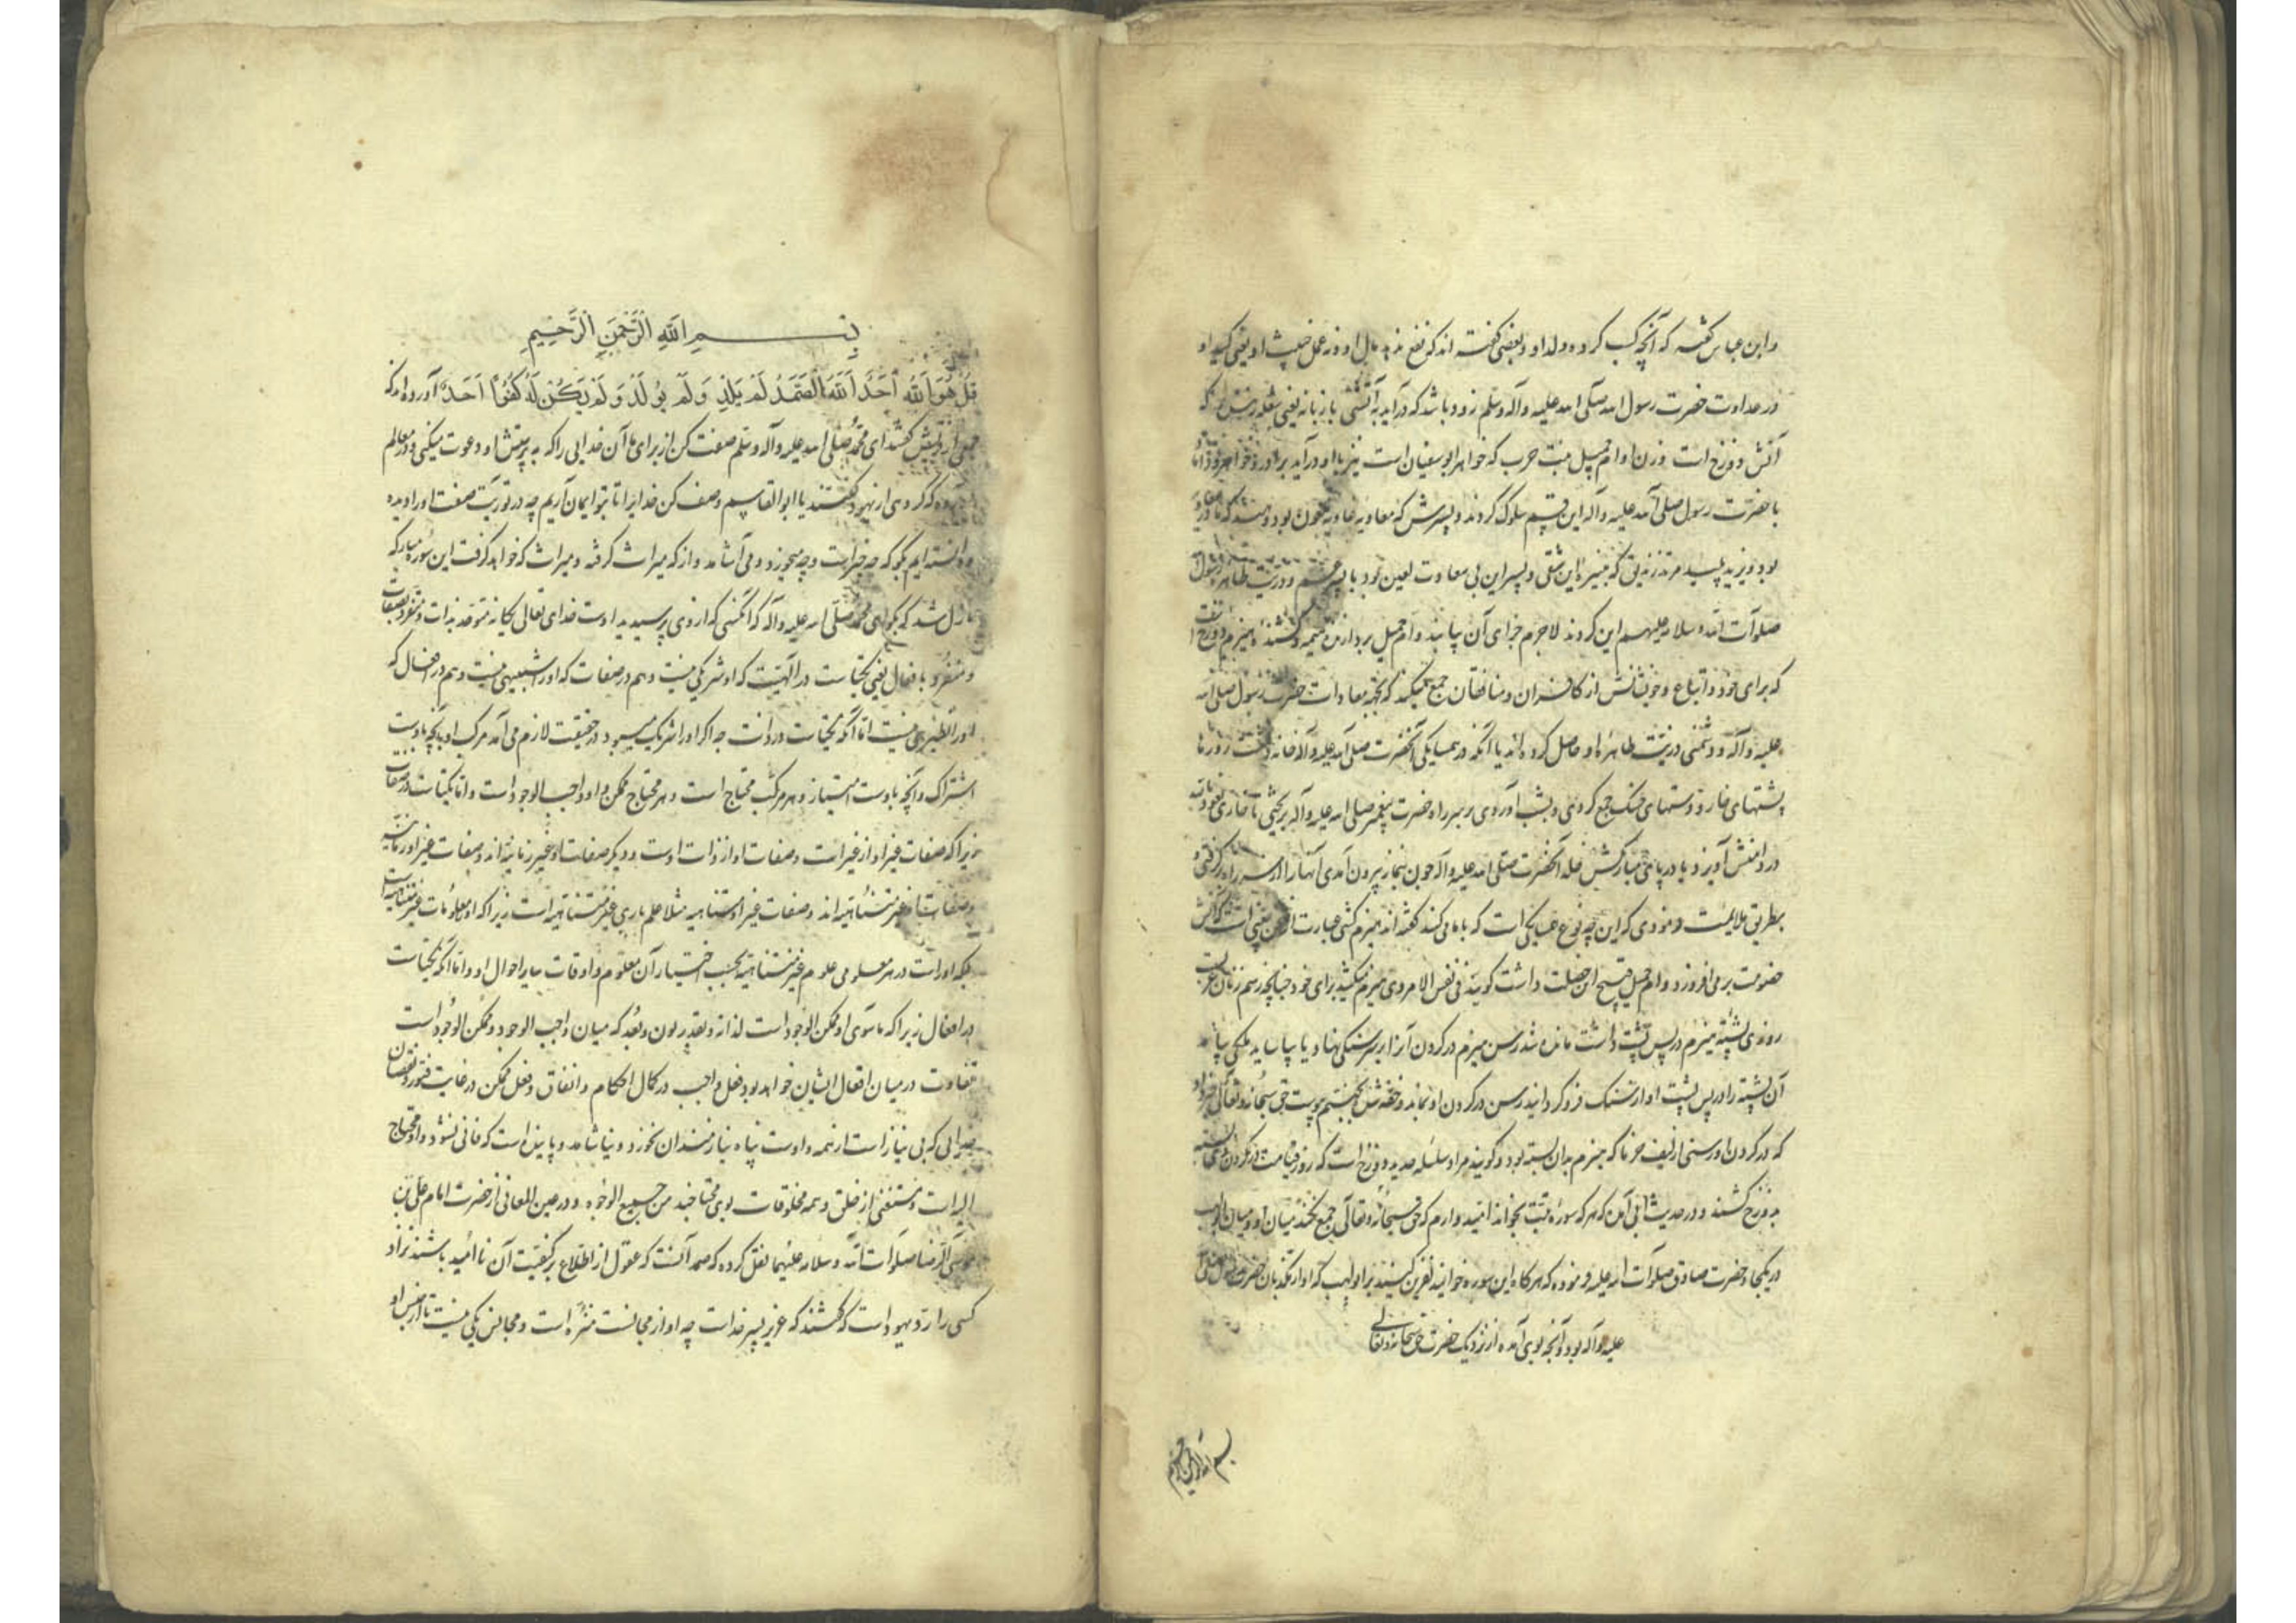 وابن عباس گفته که آنچه کسب کرده ولد او و بعضی گفته اند که نفع ندید مال او و نه عمل خبیث او یعنی کید او
در عداوت حضرت رسول الله صلی الله علیه وآله وسلم زود باشد که درآید به آتشی با زبانه یعنی شعله زننده که
آتش دوزخ است و زن او ام جمیل بنت حرب که خواهر ابوسفیان است نیز با او درآید
با حضرت رسول صلی الله علیه وآله این قسم سلوک کردند و پسرش که معاویه بود
بود و یزید پلید
صلوات الله وسلامه علیهم این کردند لاجرم جزای آن یابند و ام جمیل بردارنده هیمه
که برای خود و اتباع و خویشانش از کافران و منافقان جمع میکند که بجهة معادات حضرت رسول صلی الله
علیه وآله و دشمنی ذریت طاهره او حاصل کرده اند یا آنکه در همسایکی آنحضرت صلی الله علیه وآله خانه داشت روزها
پشتهای خار و دستهای خسک جمع کردی و بشب آوردی و بر سر راه حضرت پیغمبر صلی الله علیه وآله بریختی تا خاری
در دامنش آویزد یا در پای مبارکش خلد آنحضرت صلی الله علیه وآله چون بنماز بیرون آمدی آنها را از سر راه برگرفتی و
بطریق ملایمت فرمودی که این چه نوع همسایکی است که با ما می کنند گفته اند هیزم کشی عبارت از سخن چینی است که آتش
خصومت برمی افروزد و ام جمیل قبیح این خصلت داشت گویند فی نفس الامر وی هیزم میکشید برای خود چنانچه رسم زنان عرب
روزی پشته هیزم در پس پشت داشت مانده شد رسن هیزم در کردن آنرا بر سر سنگی نهاد تا بیاساید ملکی بیامد
آن پشته را در پس پشت او از سنگ فرو گردانید رسن در گردن او بماند و خفه شد و بجهنم پیوست حق سبحانه وتعالی
که در گردن او رسنی از لیف خرما که هیزم بدان بسته بود و گویند مراد سلسله حدید دوزخ است که روز قیامت در گردن وی
بدوزخ کشند و در حدیث ابی آمده که هر که سوره تبت بخواند امید وارم که حق سبحانه وتعالی جمع نکند میان او و میان ابولهب
در یکجا و حضرت صادق صلوات الله علیه فرموده که هرگاه این سوره خوانید نفرین کنید بر ابولهب که او از مکذبان حضرت رسول صلی الله
علیه وآله بود و آنچه بوی آمده از نزدیک حضرت حق سبحانه وتعالی
بسم الله الرحمن الرحیم
بِسمِ اللهِ الرَّحْمنِ الرَّحِیمِ
قُلْ هُوَ اللهُ اَحَدٌ اَللهُ الصَّمَدُ لَمْ یَلِدْ وَ لَمْ یُولَدْ وَ لَمْ یَکُنْ لَهُ کُفُوًا اَحَدٌ آورده اند که
جمعی از قریش گفتند ای محمد صلی الله علیه وآله وسلم صفت کن از برای ما آن خدایی را که به پرستش او دعوت میکنی و در معالم
آورده که گروهی از یهود گفتند یا ابوالقاسم وصف کن خدایرا تا بتو ایمان آریم چه در توریت صفت او را دیده
و دانسته ایم بگو که چه چیز است و چه میخورد و می آشامد و از که میراث گرفته و میراث که خواهد گرفت این سوره مبارکه
نازل شد که بگو ای محمد صلی الله علیه وآله که آنکسی که از وی پرسیدید اوست خدای تعالی یگانه متوحد بذات و متفرد بصفات
و متفرد با فعال یعنی یکتاست در الهیت که او شریکی نیست و هم در صفات که او را شبیهی نیست و هم در افعال که
او را نظیری نیست اما آنکه یکتاست در ذات چه اگر او را شریک میبود در حقیقت لازم می آمد مرکب او بآنچه باوست
اشتراک و آنچه باوست امتیاز و هر مرکب محتاج است و هر محتاج ممکن و او واجب الوجود است و اما یکتاست در صفات
زیرا که صفات غیر او از غیر است و صفات او از ذات اوست و دیگر صفات او غیر زمانیه اند و صفات غیر او زمانیه
وصفات او غیر متناهیه اند و صفات غیر او متناهیه مثلا علم باری غیر متناهیه است زیرا که او معلومات غیر متناهیه
بلکه او راست در هر معلومی علوم غیر متناهیه بحسب اختیار آن معلوم و اوقات سایر احوال او و اما آنکه یکتاست
در افعال زیرا که ماسوی او ممکن الوجود است لذاته و بقدر بون و بعد که میان واجب الوجود و ممکن الوجود است
تفاوت در میان افعال ایشان خواهد بود فعل واجب در کمال احکام و اتفاق و فعل ممکن در غایت فتور و نقصان
خدائی که بی نیاز است از همه و اوست پناه نیازمندان نخورد و نیاشامد و پاینده است که فانی نشود و او محتاج
الیه است و مستغنی از خلق و همه مخلوقات بوی محتاجند من جمیع الوجوه و در عین المعانی از حضرت امام علی بن
موسی الرضا صلوات الله وسلامه علیهما نقل کرده که صمد آنست که عقول از اطلاع بر کیفیت آن ناامید باشند نزاد
کسی را رد یهود است که گفتند که عزیر پسر خداست چه او از مجانست منزه است و مجانس یکی نیست تا از جنس او